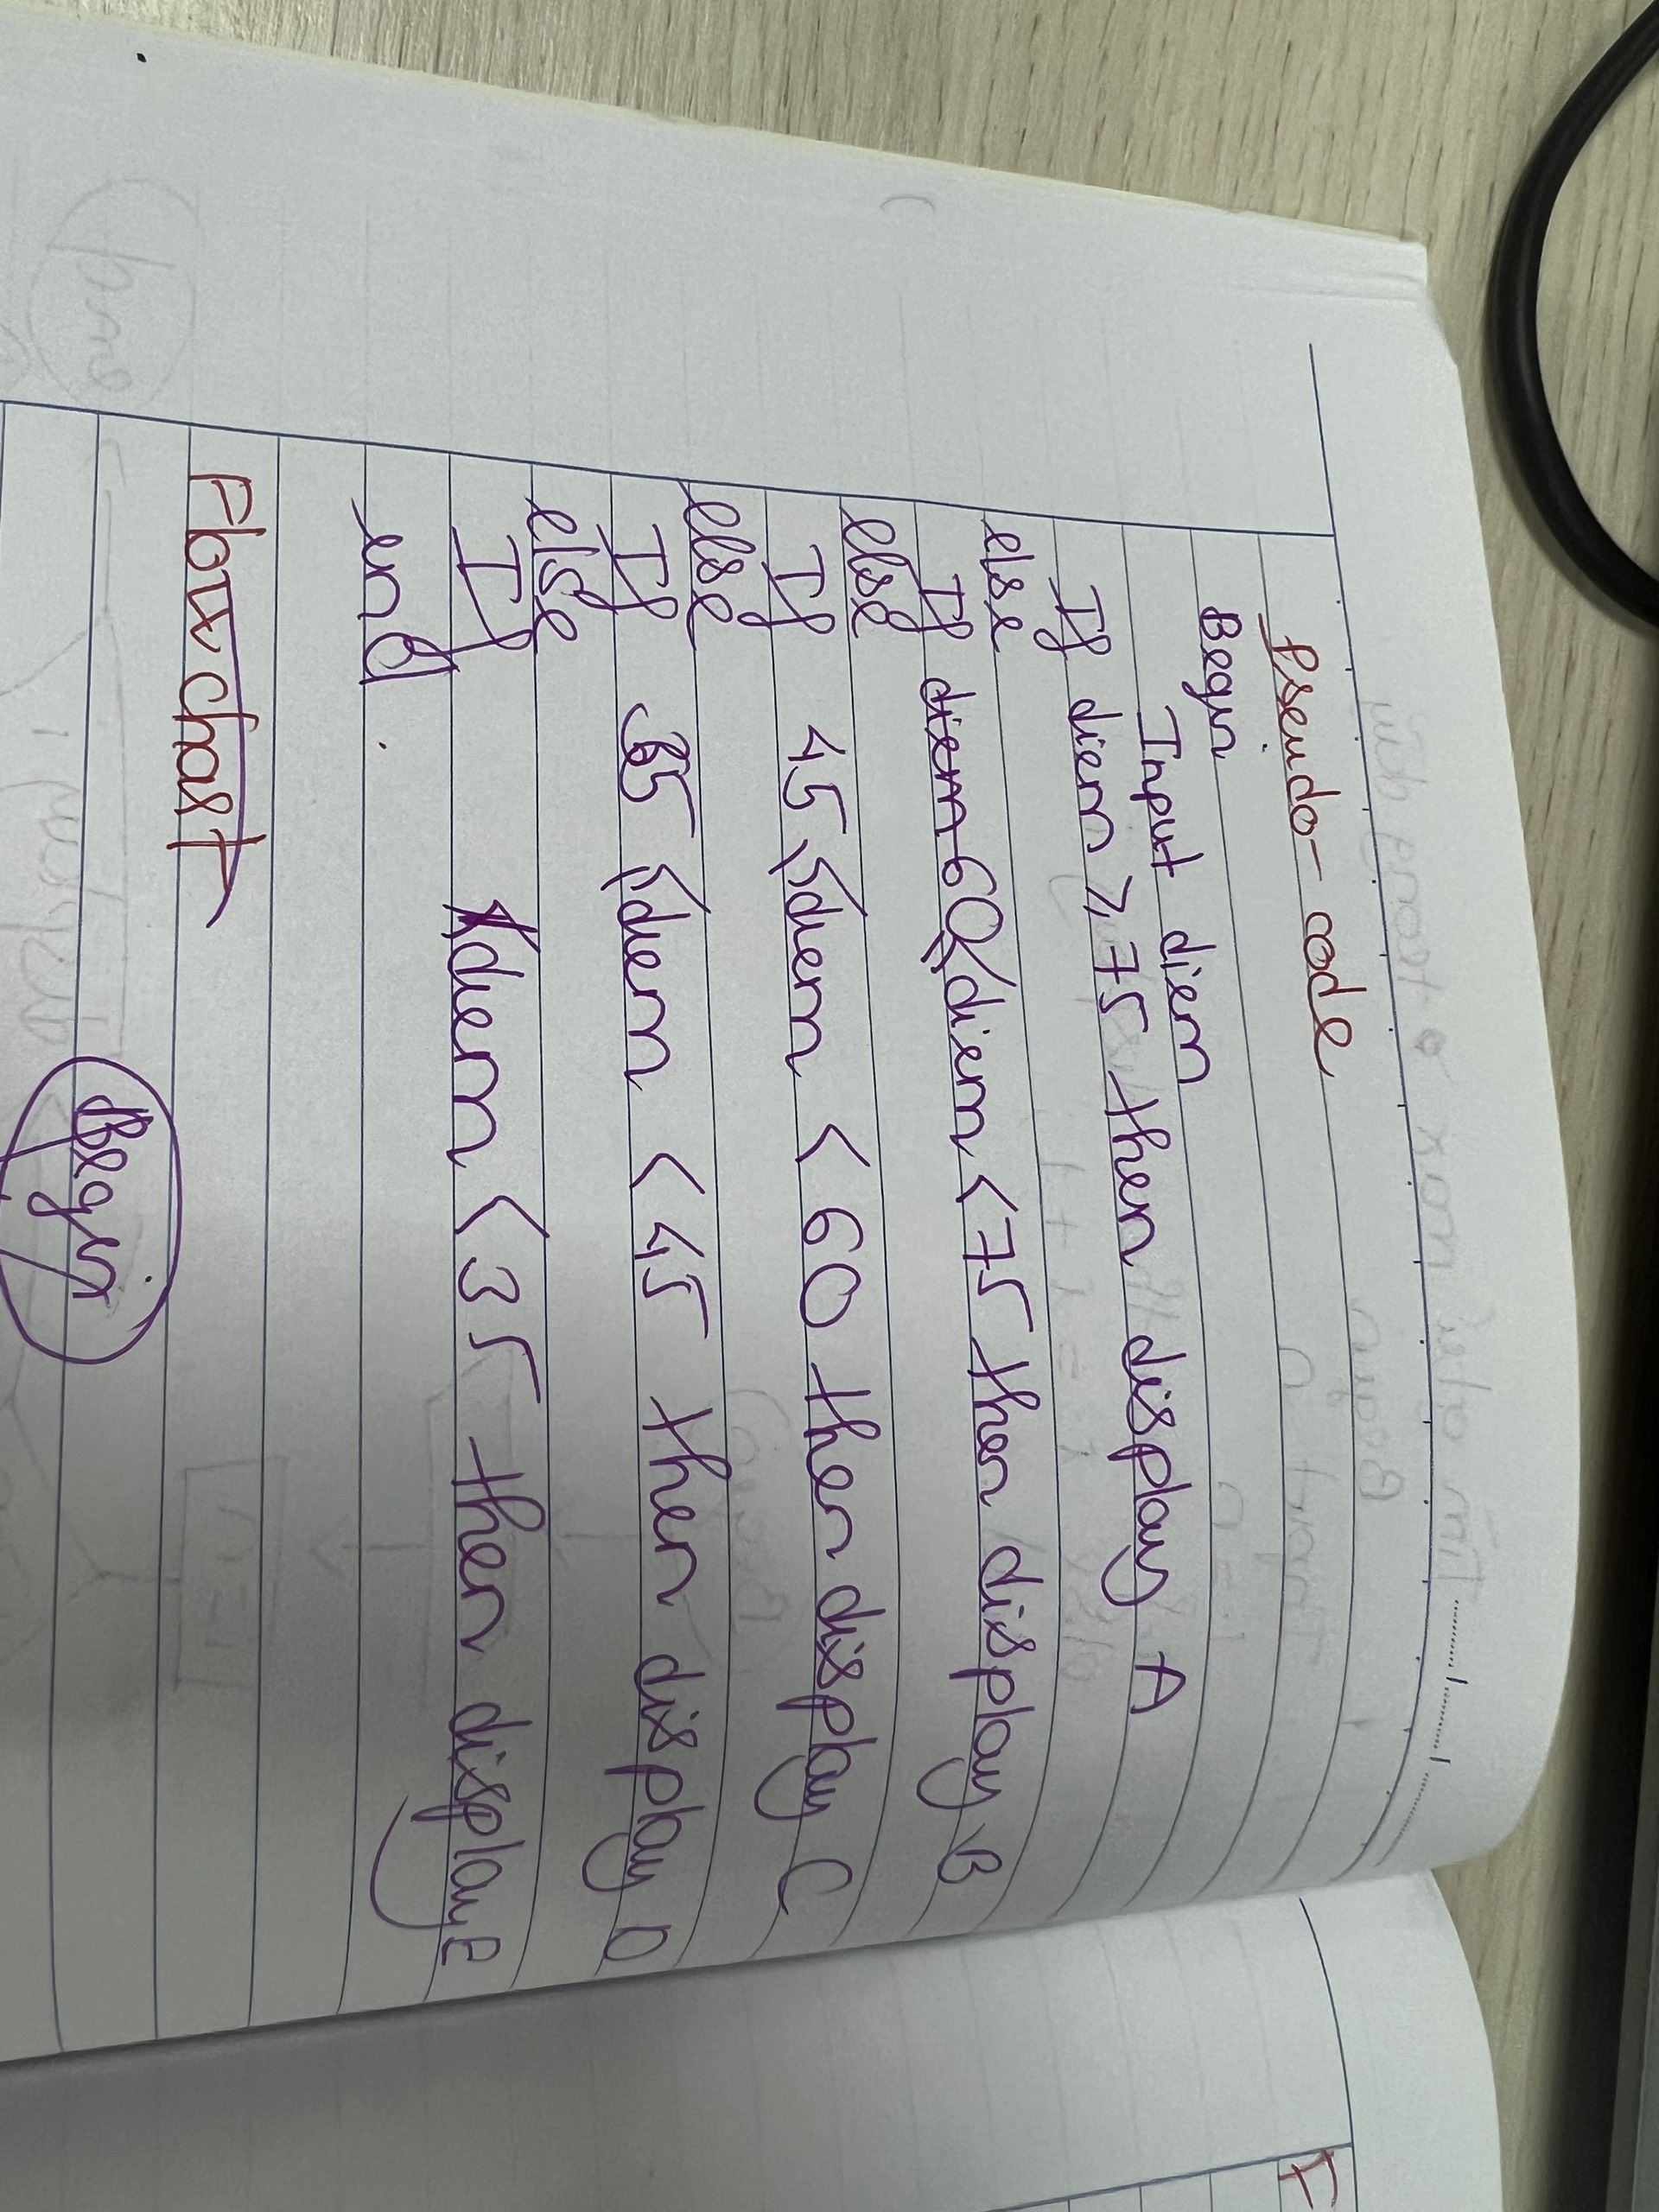 Pseudo-code
Begin
Input diem
If diem ≥ 75 then display A
else
If diem 60 ≤ diem < 75 then display B
else
If 45 ≤ diem < 60 then display C
else
If 35 ≤ diem < 45 then display D
else
If diem < 35 then display E
end.
Flowchart
Begin